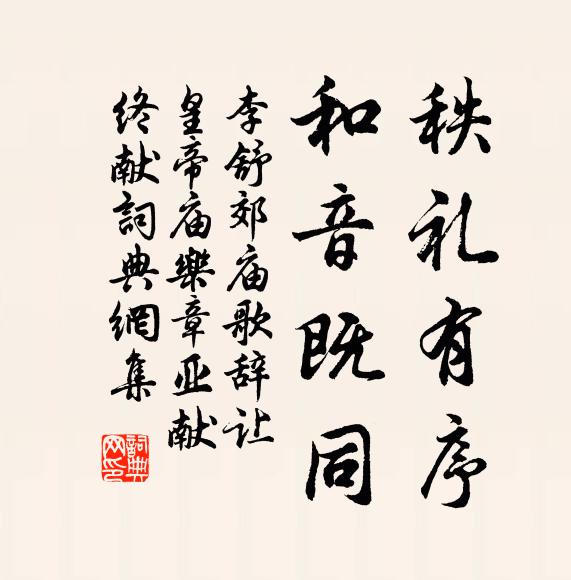 秩礼有序
和音既同
李舒郊庙歌辞让
皇帝庙樂章亚献
终献詞典網集
詞典网印